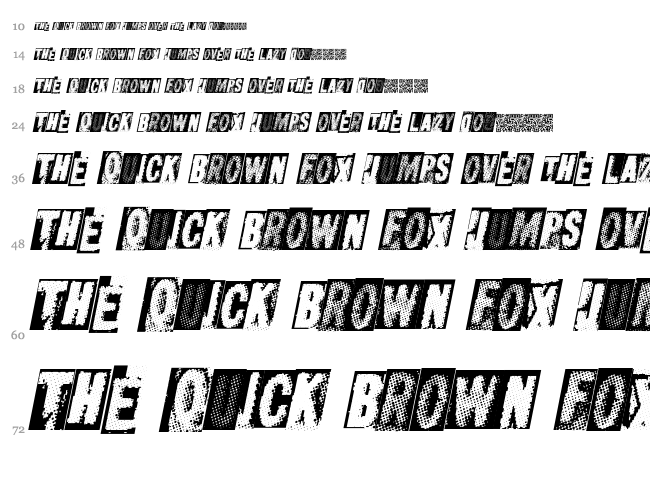 10 THE QUICK BROWN FOX JUMPS OVER THE LAZY DOG
14 THE QUICK BROWN FOX JUMPS OVER THE LAZY DOG
18 THE QUICK BROWN FOX JUMPS OVER THE LAZY DOG
24 THE QUICK BROWN FOX JUMPS OVER THE LAZY DOG
36 THE QUICK BROWN FOX JUMPS OVER THE LAZ
48 THE QUICK BROWN FOX JUMPS OV
60 THE QUICK BROWN FOX JUM
72 THE QUICK BROWN FOX